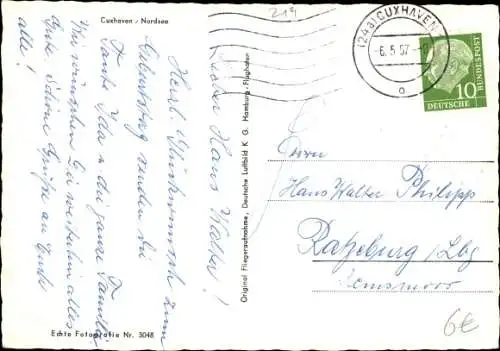 Cuxhaven / Nordsee
219
Lieber Hans Walter!
Herzl. Glückwünsche zum
Geburtstag senden Dir
Tante Ida u. die ganze Familie
Wir wünschen Dir weiterhin alles
Gute. Schöne Grüße an Euch
alle!
Echte Fotografie Nr. 3048
Original Fliegeraufnahme, Deutsche Luftbild K. G. Hamburg-Flughafen
(24a) CUXHAVEN
-6.5.57.-
a
10
DEUTSCHE
BUNDESPOST
Herrn
Hans Walter Philipp
Ratzeburg / Lbg
6€